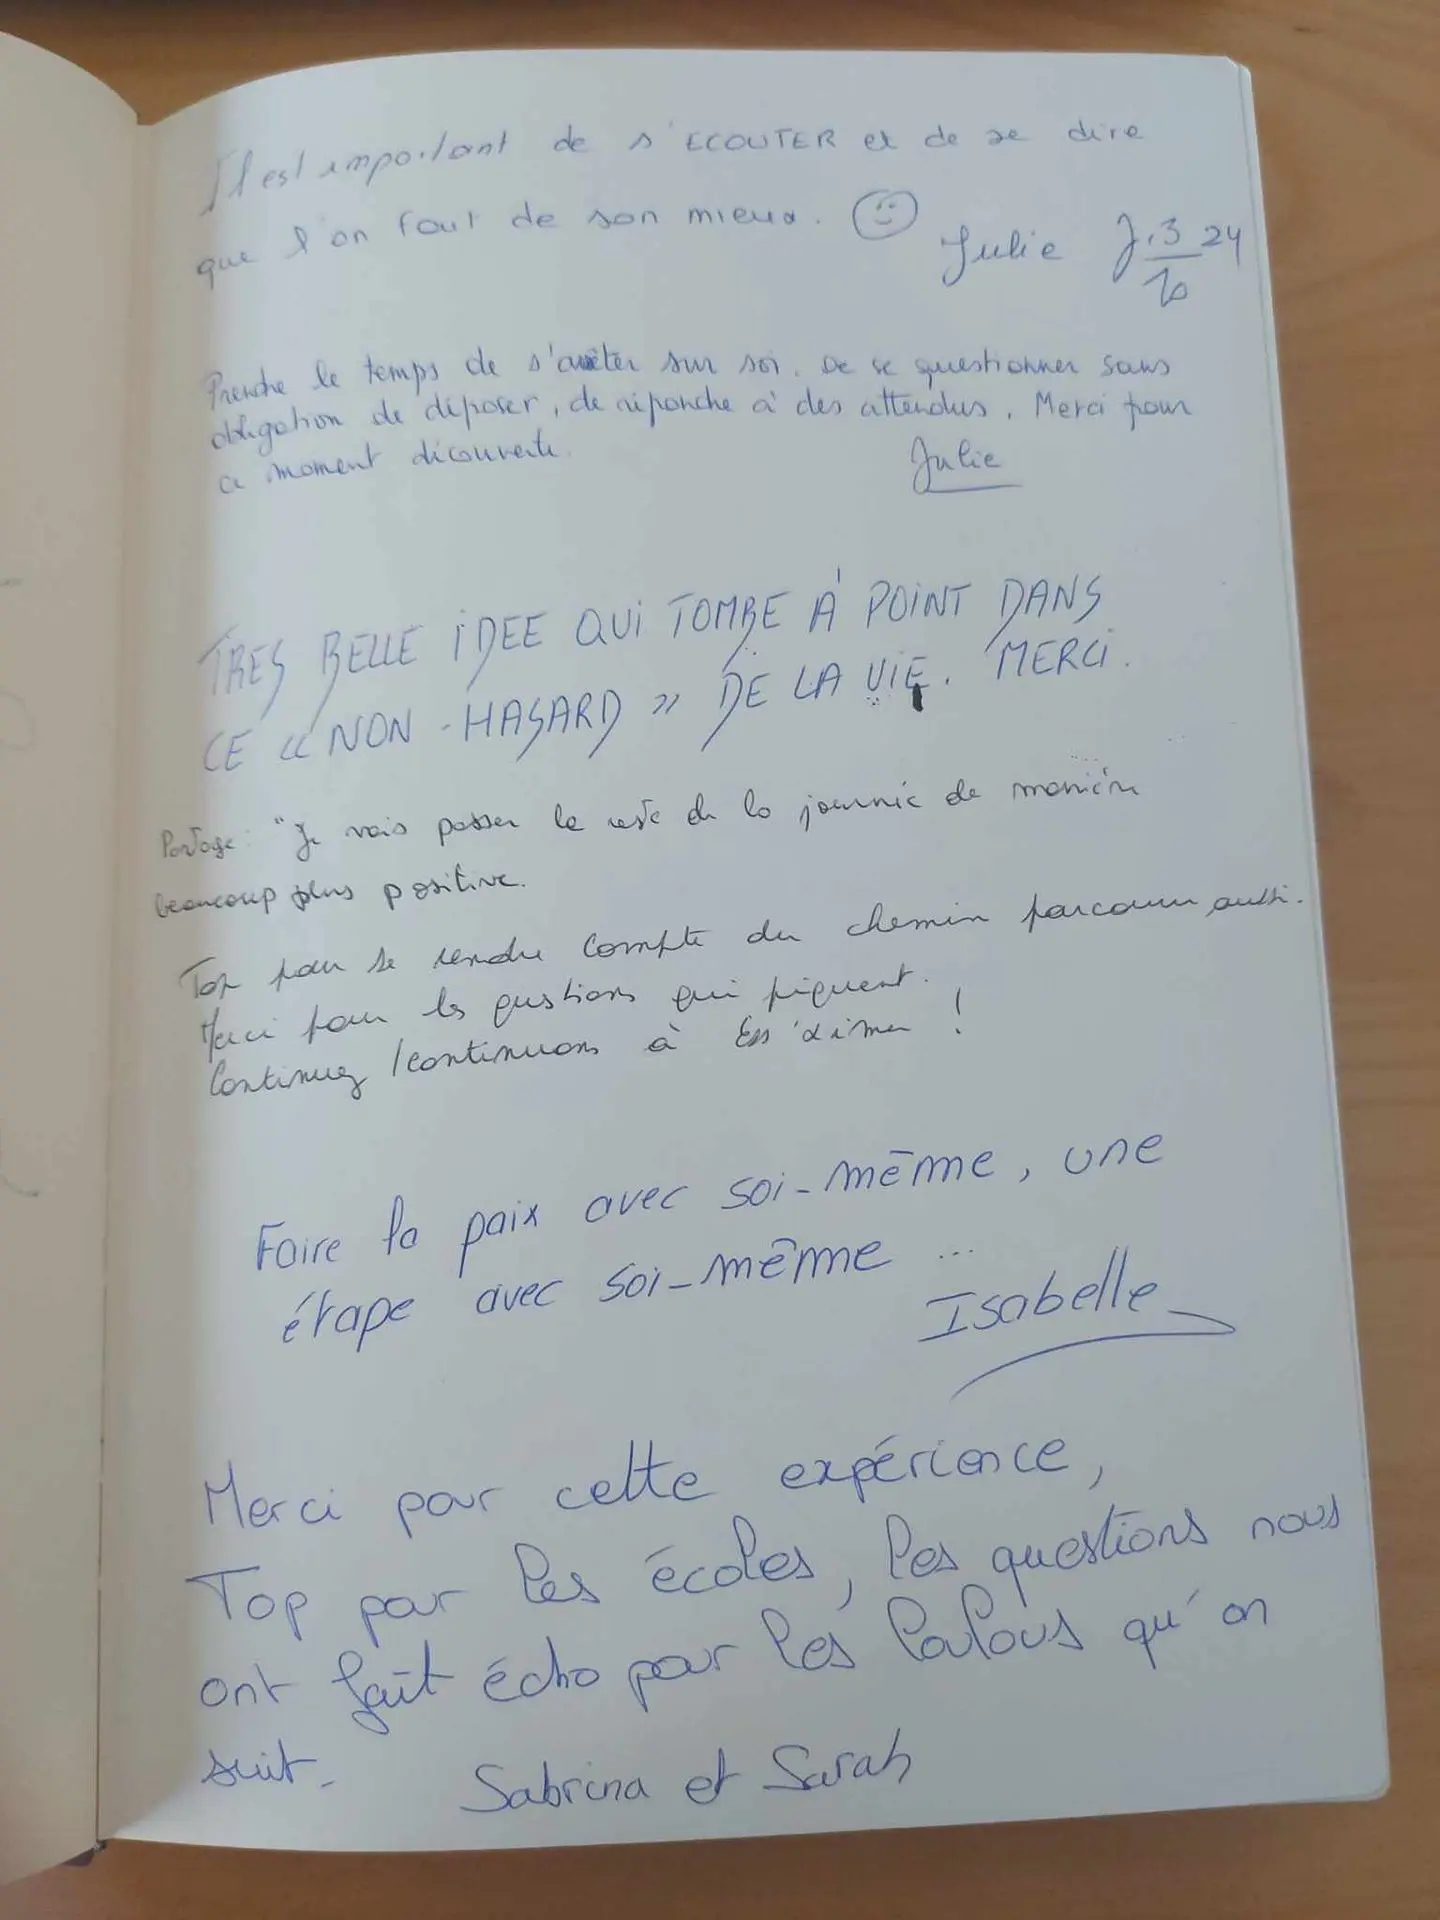 Il est important de s'ECOUTER et de se dire
que l'on fait de son mieux.
Julie J. 3 24
10
Prendre le temps de s'arrêter sur soi. De se questionner sans
obligation de déposer, de répondre à des attendus. Merci pour
ce moment découverte.
Julie
TRES BELLE IDEE QUI TOMBE À POINT DANS
CE « NON-HASARD » DE LA VIE. MERCI.
Partage : "Je vais passer le reste de la journée de manière
beaucoup plus positive.
Top pour se rendre compte du chemin parcouru aussi.
Merci pour les questions qui piquent.
Continuez / continuons à s'aimer !
Faire la paix avec soi-même, une
étape avec soi-même ...
Isabelle
Merci pour cette expérience,
Top pour les écoles, les questions nous
ont fait écho pour les loulous qu'on
suit.
Sabrina et Sarah